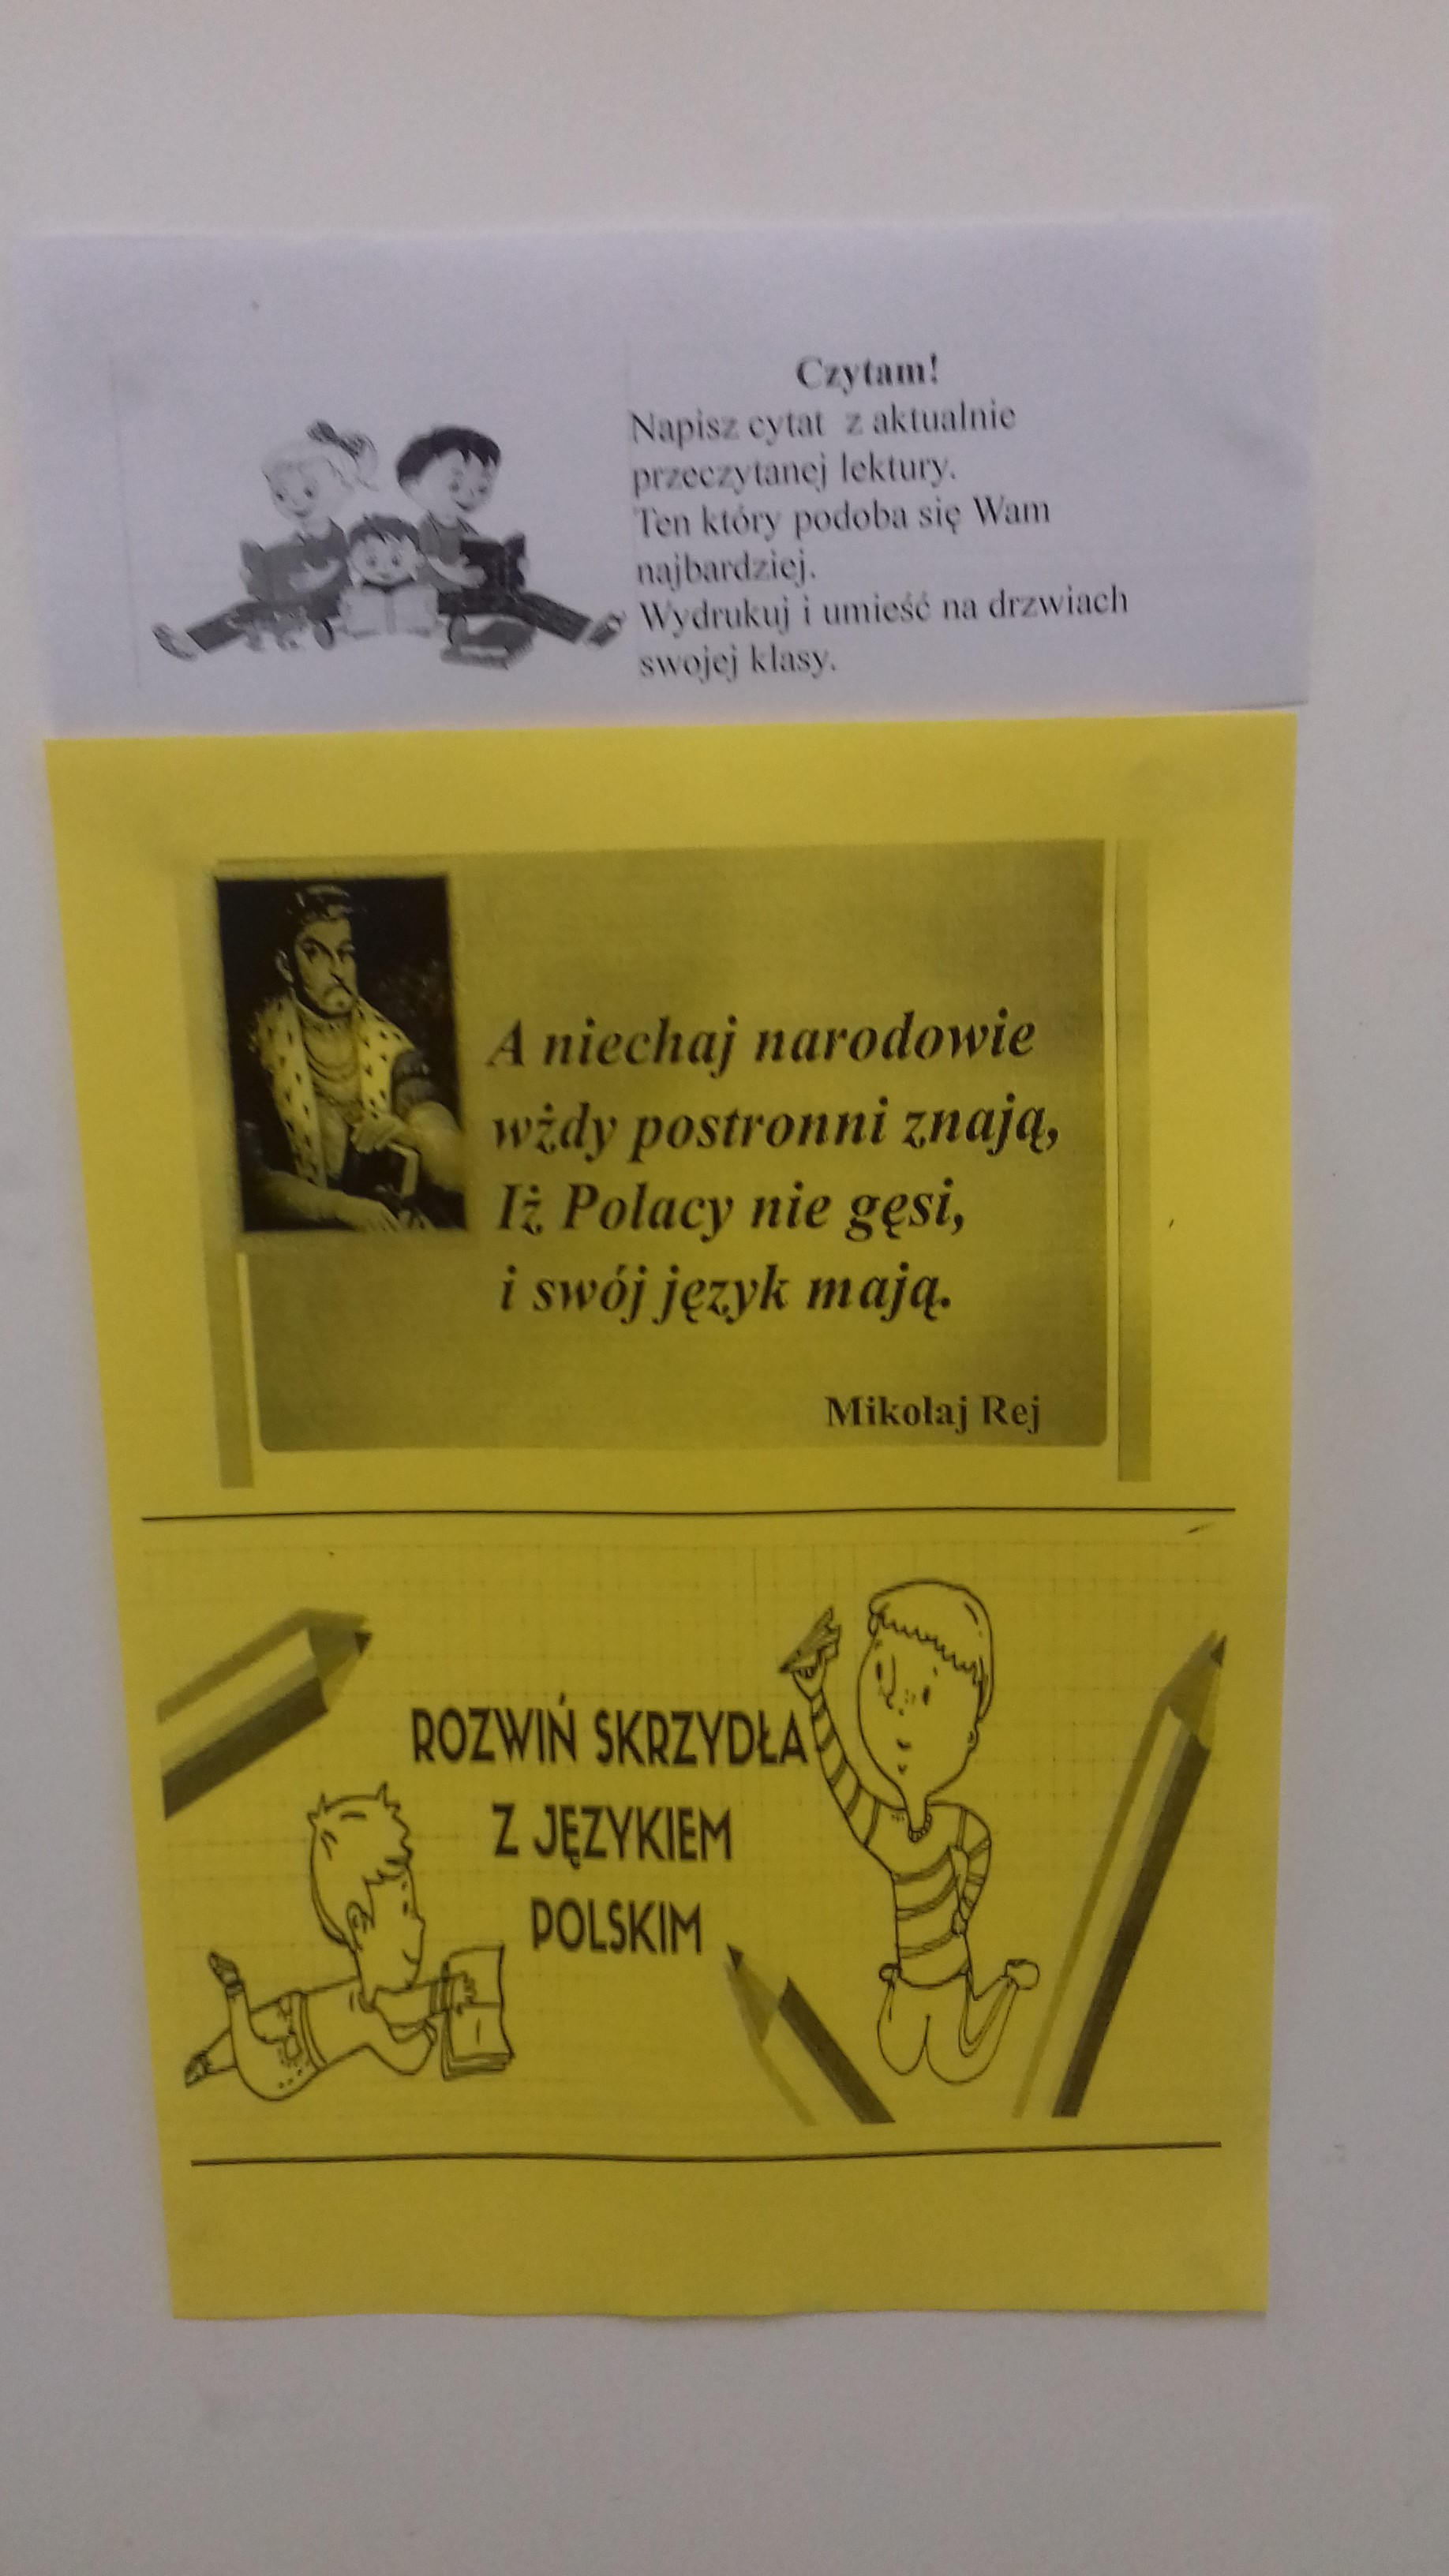 Czytam!
Napisz cytat z aktualnie
przeczytanej lektury.
Ten który podoba się Wam
najbardziej.
Wydrukuj i umieść na drzwiach
swojej klasy.
A niechaj narodowie
wżdy postronni znają,
Iż Polacy nie gęsi,
i swój język mają.
Mikołaj Rej
ROZWIŃ SKRZYDŁA
Z JĘZYKIEM
POLSKIM